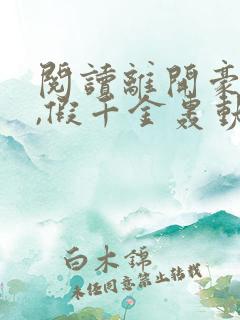 閱讀離開豪
,假千金轟動
白木錦
未经同意禁止转载